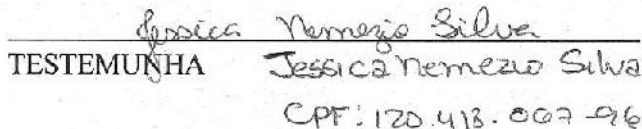 Jessica Nemezio Silva
TESTEMUNHA Jessica Nemezio Silva
CPF: 120.413.007-96